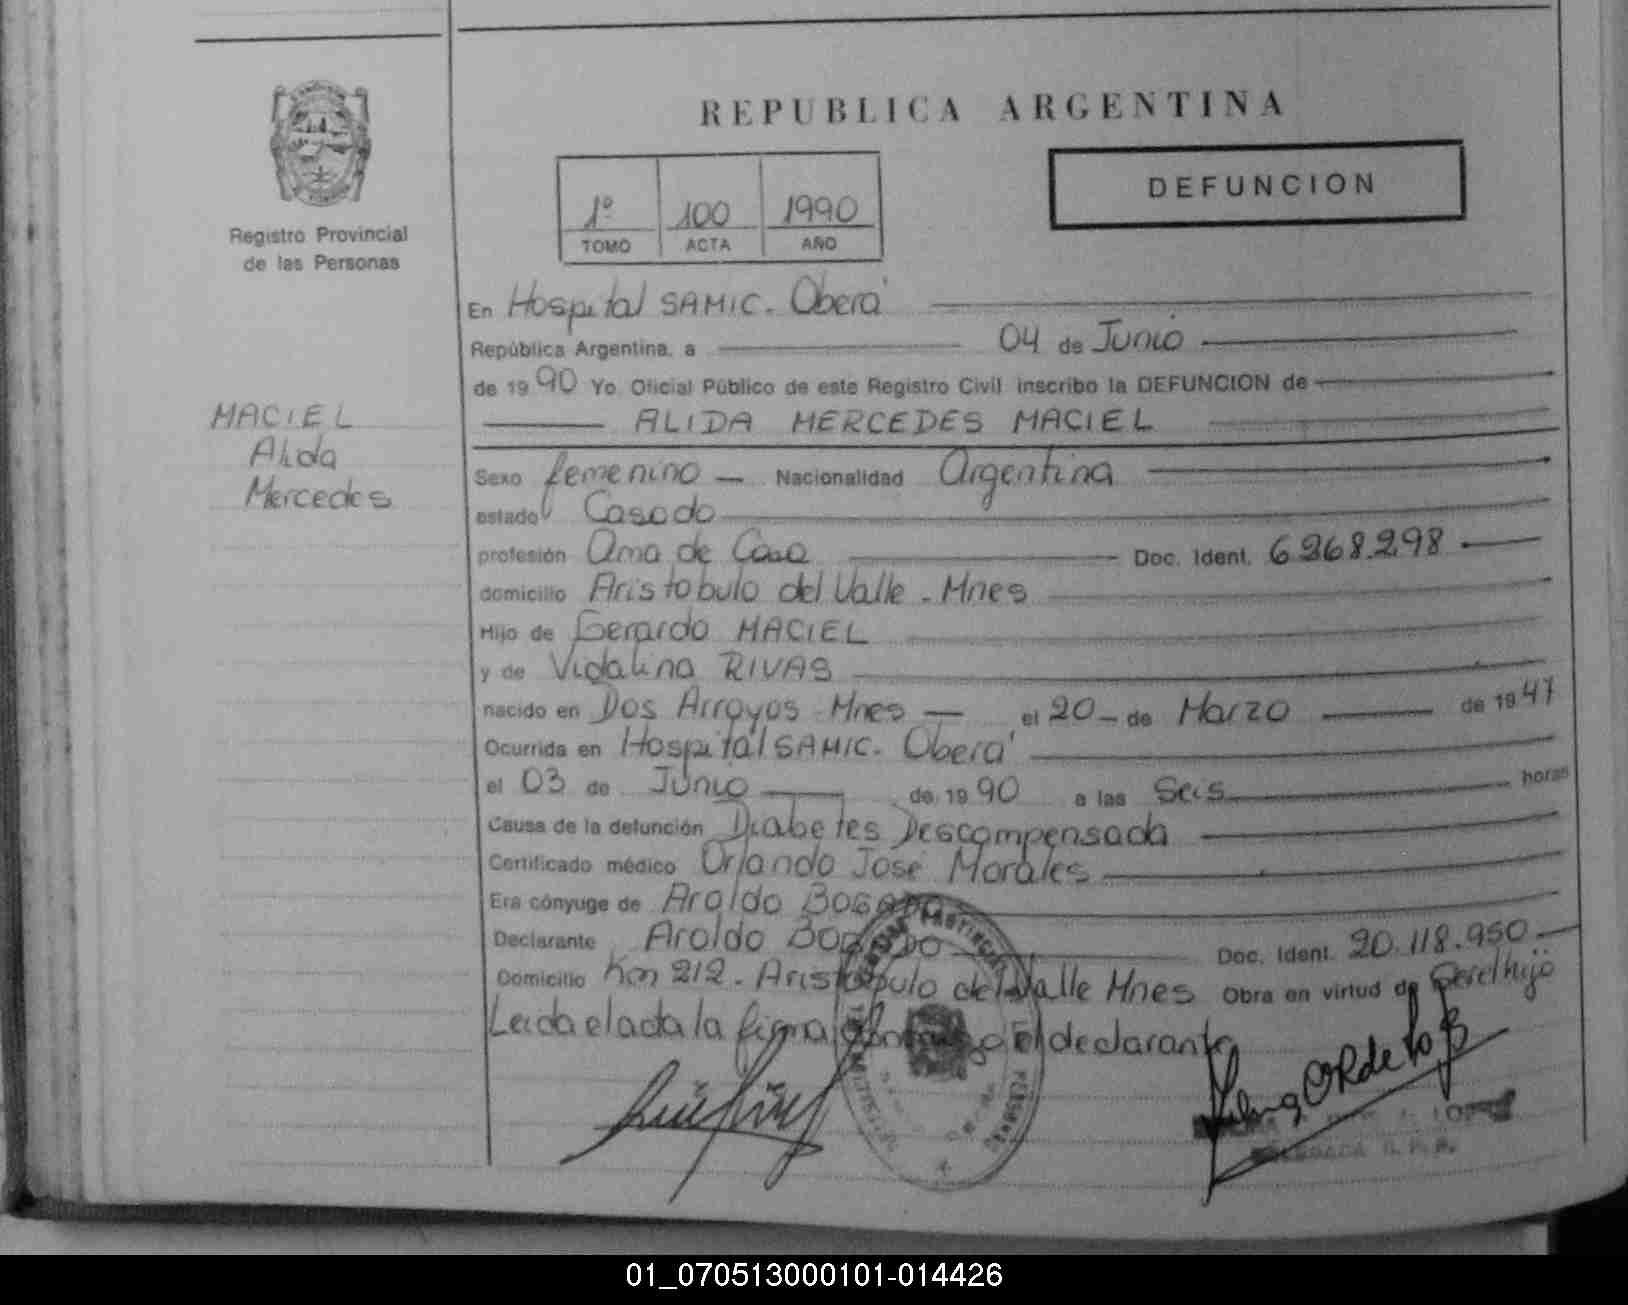 REPUBLICA ARGENTINA
DEFUNCION
1º 100 1990
TOMO ACTA AÑO
Registro Provincial
de las Personas
MACIEL
Alida
Mercedes
En Hospital SAMIC. Oberá
República Argentina, a 04 de Junio
de 1990 Yo, Oficial Público de este Registro Civil inscribo la DEFUNCION de
ALIDA MERCEDES MACIEL
Sexo femenino Nacionalidad Argentina
estado Casado
profesión Ama de Casa Doc. Ident. 6.268.298
domicilio Aristobulo del Valle - Mnes
Hijo de Gerardo MACIEL
y de Vidalina RIVAS
nacido en Dos Arroyos - Mnes el 20 de Marzo de 1947
Ocurrida en Hospital SAMIC. Oberá
el 03 de Junio de 1990 a las Seis horas
Causa de la defunción Diabetes Descompensada
Certificado médico Orlando José Morales
Era cónyuge de Aroldo BOGADO
Declarante Aroldo BOGADO Doc. Ident. 20.118.950
Domicilio Km 212 - Aristobulo del Valle Mnes Obra en virtud de ser el hijo
Leida el acta la firma el declarante
01_070513000101-014426